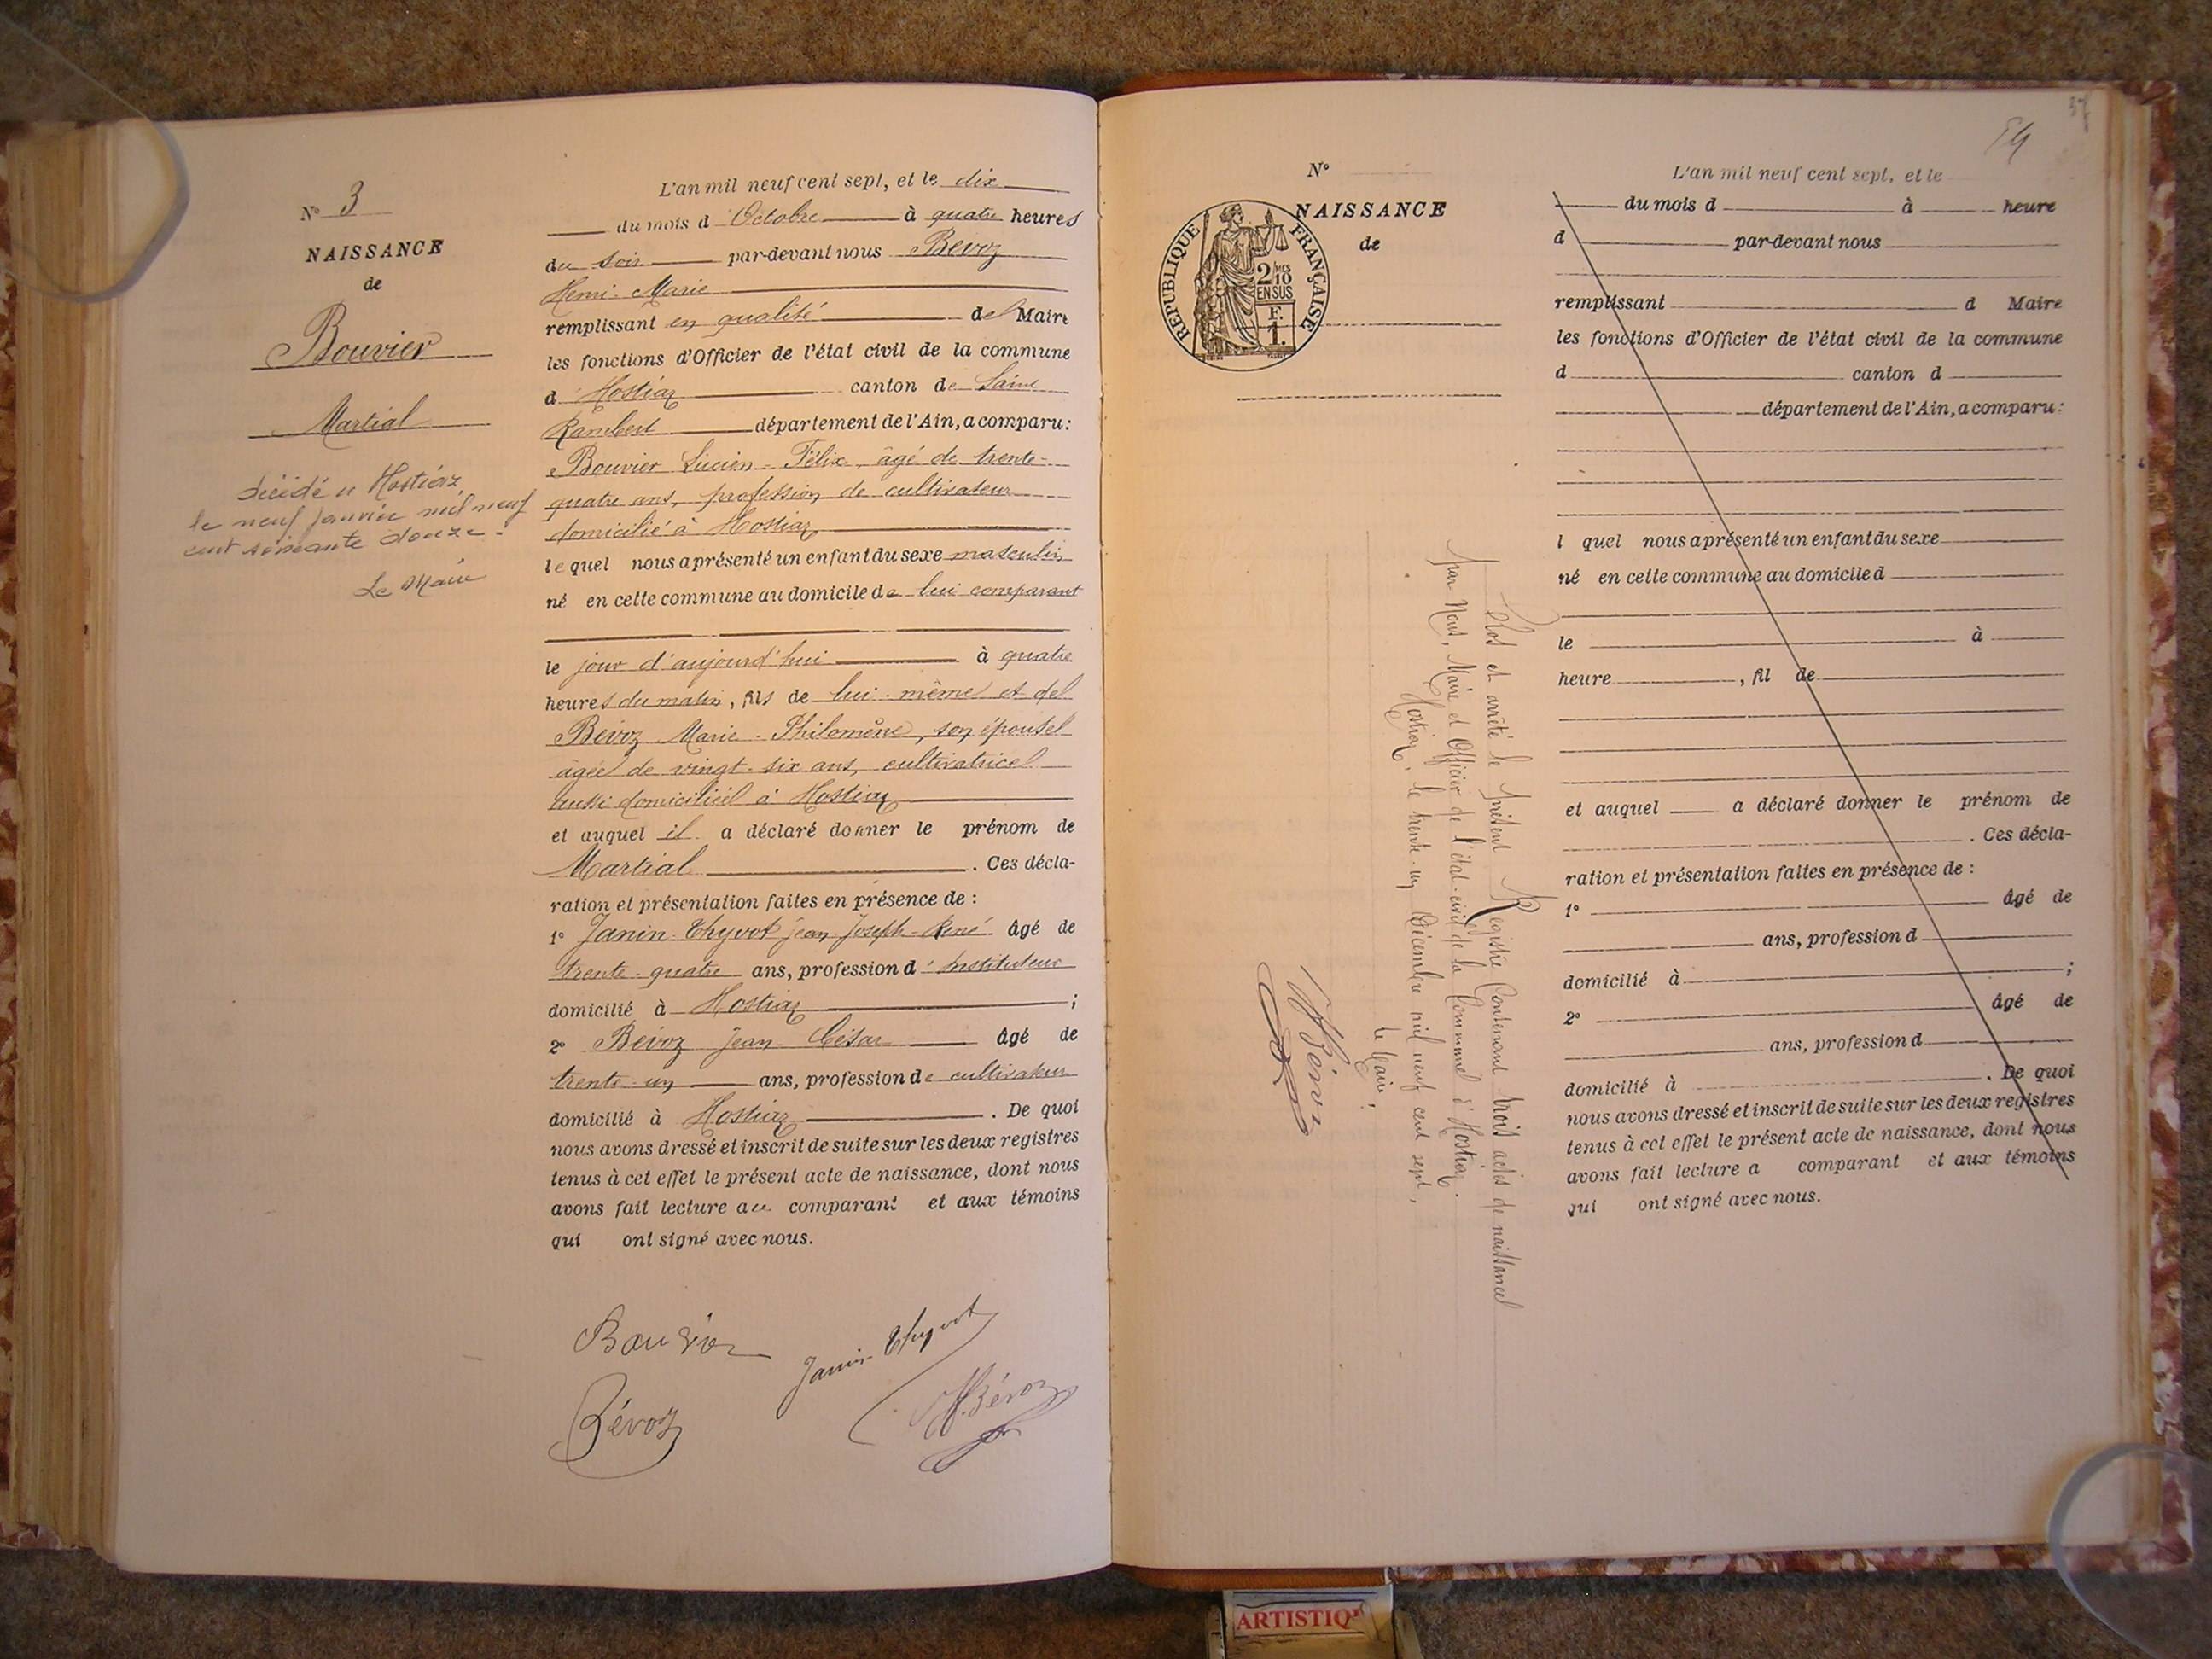 N° 3
NAISSANCE
de
Bouvier
Martial
décédé à Hostiaz
le neuf janvier mil neuf
cent soixante douze.
Le Maire
L'an mil neuf cent sept, et le dix
du mois d'Octobre à quatre heures
du soir par-devant nous Bévoz
Henri-Marie
remplissant en qualité de Maire
les fonctions d'Officier de l'état civil de la commune
d'Hostiaz canton de Saint
Rambert département de l'Ain, a comparu:
Bouvier Lucien-Félix, âgé de trente-
quatre ans, profession de cultivateur
domicilié à Hostiaz
lequel nous a présenté un enfant du sexe masculin
né en cette commune au domicile de lui comparant
le jour d'aujourd'hui à quatre
heures du matin, fils de lui-même et de
Bévoz Marie-Philomène, son épouse
âgée de vingt-six ans, cultivatrice
aussi domiciliée à Hostiaz
et auquel il a déclaré donner le prénom de
Martial. Ces décla-
ration et présentation faites en présence de :
1° Janin-Thyvot Jean Joseph-René âgé de
trente-quatre ans, profession d'instituteur
domicilié à Hostiaz ;
2° Bévoz Jean-César âgé de
trente-un ans, profession de cultivateur
domicilié à Hostiaz. De quoi
nous avons dressé et inscrit de suite sur les deux registres
tenus à cet effet le présent acte de naissance, dont nous
avons fait lecture au comparant et aux témoins
qui ont signé avec nous.
Bouvier
Janin-Thyvot
Bévoz
H. Bévoz
37
54
N°
NAISSANCE
de
REPUBLIQUE FRANÇAISE
2/10 MES
EN SUS
F.
1.
Clos et arrêté le présent Registre contenant trois actes de naissance
par Nous, Maire et Officier de l'état-civil de la Commune d'Hostiaz.
Hostiaz, le trente-un Décembre mil neuf cent sept,
Le Maire,
H. Bévoz
L'an mil neuf cent sept, et le
du mois d à heure
d par-devant nous
remplissant d Maire
les fonctions d'Officier de l'état civil de la commune
d canton d
département de l'Ain, a comparu:
l quel nous a présenté un enfant du sexe
né en cette commune au domicile d
le à
heure , fil de
et auquel a déclaré donner le prénom de
. Ces décla-
ration et présentation faites en présence de :
1° âgé de
ans, profession d
domicilié à ;
2° âgé de
ans, profession d
domicilié à . De quoi
nous avons dressé et inscrit de suite sur les deux registres
tenus à cet effet le présent acte de naissance, dont nous
avons fait lecture a comparant et aux témoins
qui ont signé avec nous.
ARTISTIQ